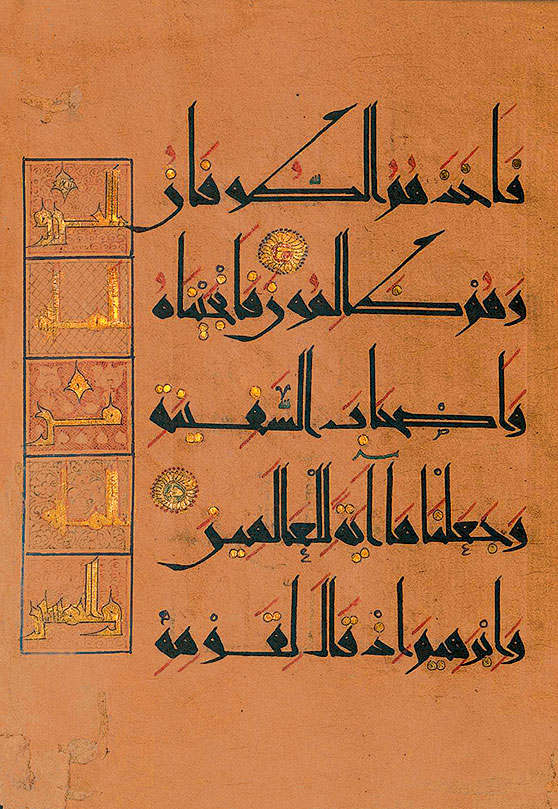 فَأَخَذَهُمُ الطُّوفَانُ
وَهُمْ ظَالِمُونَ فَأَنْجَيْنَاهُ
وَأَصْحَابَ السَّفِينَةِ
وَجَعَلْنَاهَا آيَةً لِلْعَالَمِينَ
وَإِبْرَهِيمَ إِذْ قَالَ لِقَوْمِهِ